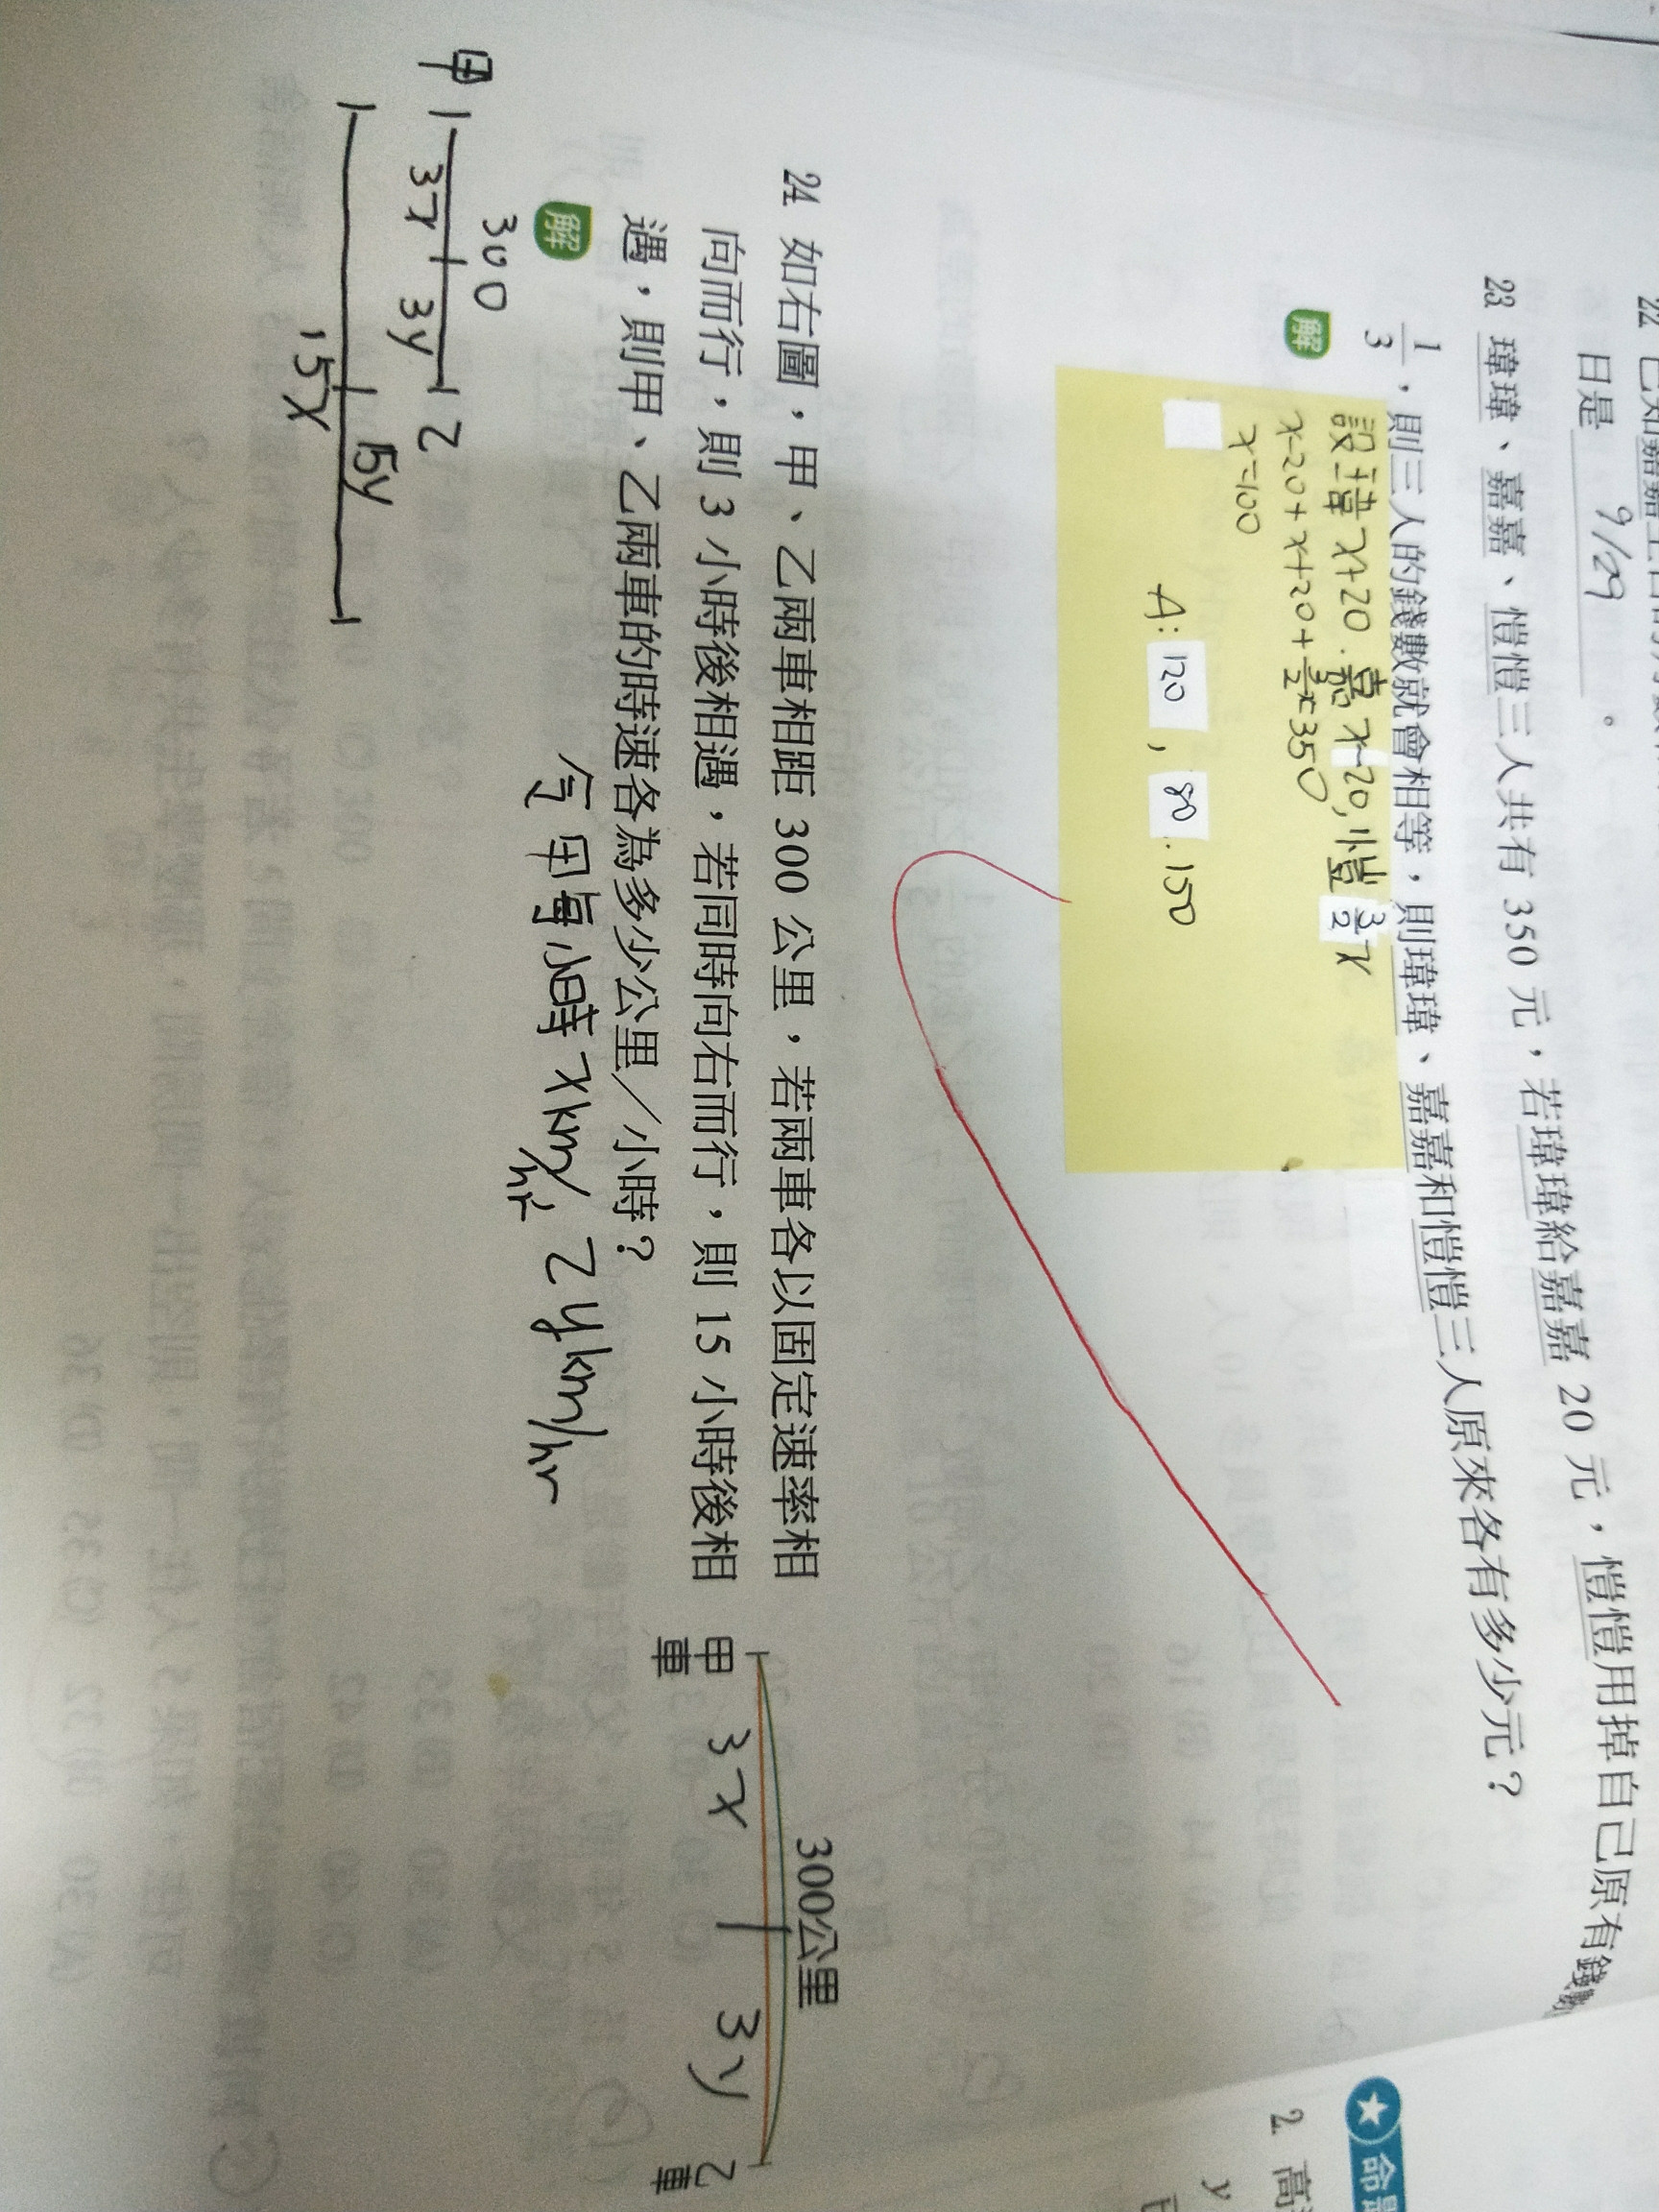 22 已知嘉嘉生日的月數
日是 9/29 。
23 瑋瑋、嘉嘉、愷愷三人共有 350 元，若瑋瑋給嘉嘉 20 元，愷愷用掉自己原有錢數
1/3，則三人的錢數就會相等，則瑋瑋、嘉嘉和愷愷三人原來各有多少元？
解
設瑋 x+20. 嘉 x-20, 愷 3/2 x
x-20+x+20+3/2x=350
x=100
A: 120, 80. 150
24 如右圖，甲、乙兩車相距 300 公里，若兩車各以固定速率相
向而行，則 3 小時後相遇，若同時向右而行，則 15 小時後相
遇，則甲、乙兩車的時速各為多少公里／小時？
300公里
3x 3y
甲車 乙車
解
令甲每小時 x km/hr 乙 y km/hr
300
甲 乙
3x 3y
15y
15x
命題
2 高
y